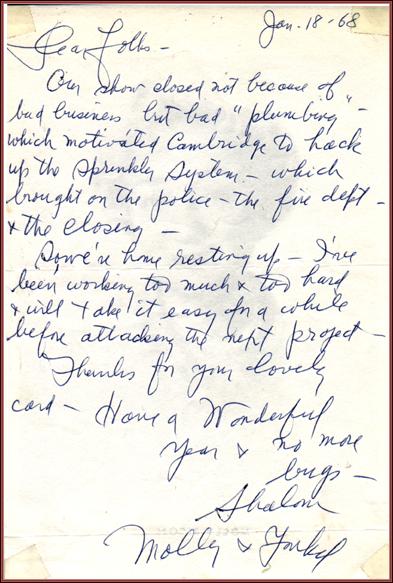 Jan. 18-68
Dear Folks -
Our show closed not because of
bad business but bad "plumbing" -
which motivated Cambridge to hack
up the sprinkler system - which
brought on the police - the fire dept -
& the closing -
So we're home resting up - I've
been working too much & too hard
& will take it easy for a while
before attacking the next project -
Thanks for your lovely
card - Have a Wonderful
Year & no more
bugs -
Shalom
Molly & Yankel